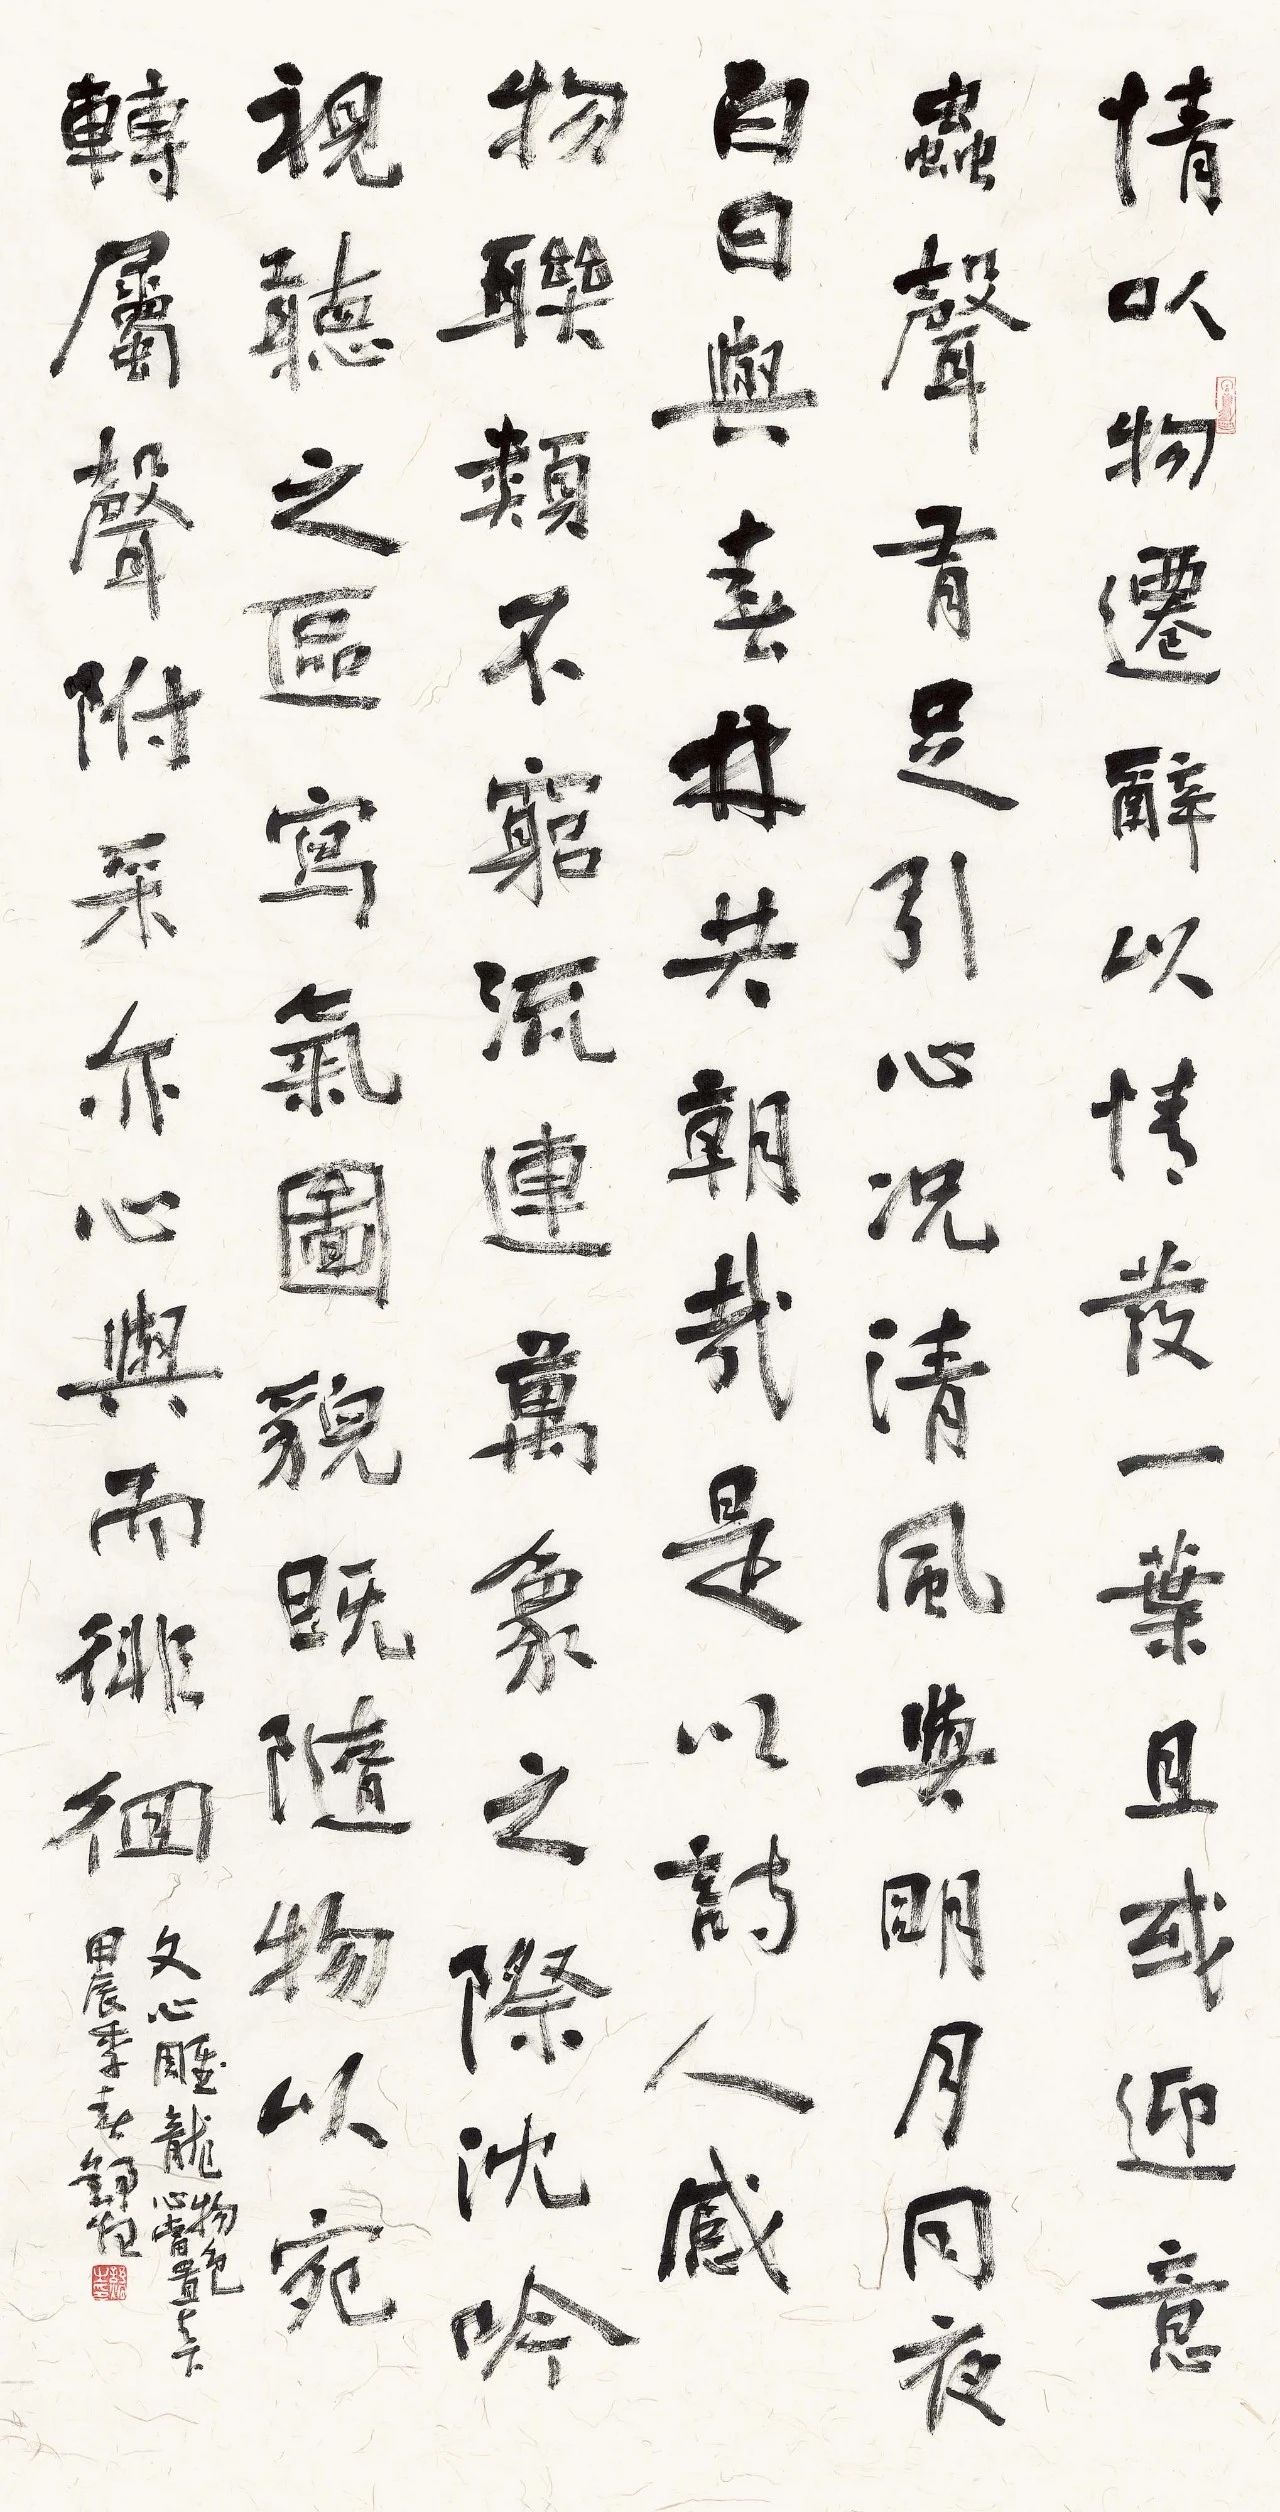 情以物遷辭以情發一葉且或迎意
蟲聲有足引心況清風與明月同夜
白日與春林共朝哉是以詩人感
物聯類不窮流連萬象之際沈吟
視聽之區寫氣圖貌既隨物以宛
轉屬聲附采亦心與而徘徊
文心雕龍物色
甲辰季春